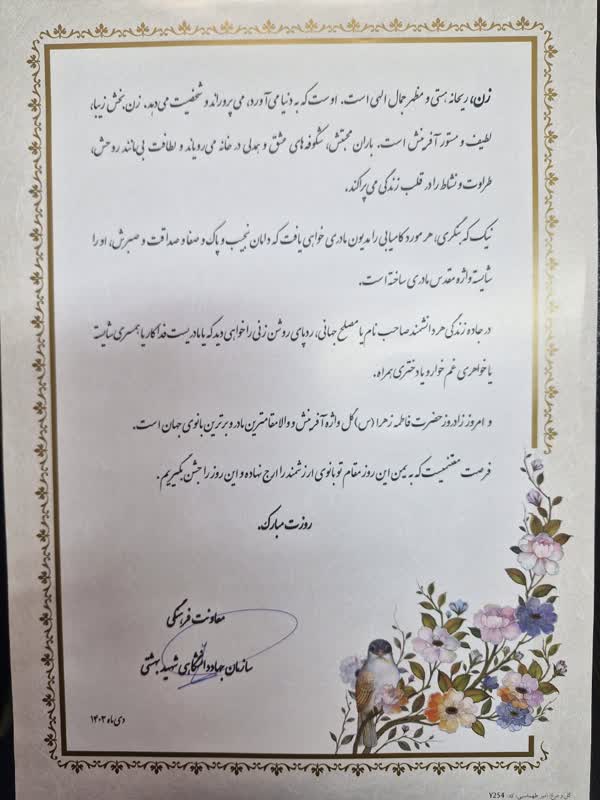 زن، ریحانه هستی و مظهر جمال الهی است. اوست که به دنیا می‌آورد، می‌پروراند و شخصیت می‌دهد. زن، بخش زیبا،
لطیف و مستور آفرینش است. باران محبتش، شکوفه‌های عشق و همدلی در خانه می‌رویاند و لطافت بی‌مانند روحش،
طراوت و نشاط را در قلب زندگی می‌پراکند.
نیک که بنگری، هر مورد کامیابی را مدیون مادری خواهی یافت که دامان نجیب و پاک و صفا و صداقت و صبرش، او را
شایسته واژه مقدس مادری ساخته است.
در جاده زندگی هر دانشمند صاحب نام یا مصلح جهانی، ردپای روشن زنی را خواهی دید که یا مادریست فداکار یا همسری شایسته
یا خواهری غم خوار و یا دختری همراه.
و امروز زادروز حضرت فاطمه زهرا (س) گل واژه آفرینش و والامقامترین مادر و برترین بانوی جهان است.
فرصت مغتنمیست که به یمن این روز مقام تو بانوی ارزشمند را ارج نهاده و این روز را جشن بگیریم.
روزت مبارک.
معاونت فرهنگی
سازمان جهاددانشگاهی شهید بهشتی
دی ماه ۱۴۰۲
گل و مرغ: امیر طهماسبی، کد: Y254